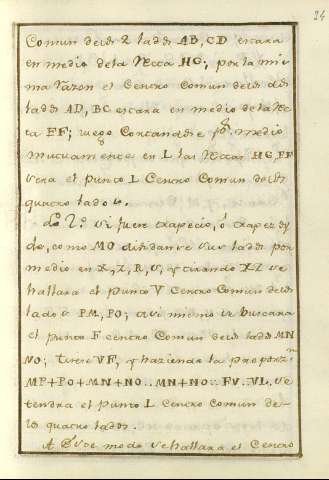 24
Comun delos 2 lados AB, CD estara
en medio dela Recta HG; por la mis
ma razon el Centro Comun delos dos
lados AD, BC estara en medio dela Rec
ta EF; luego Cortandose por medio
mutuamente en L las Rectas HG, EF
sera el punto L Centro Comun delos
quatro lados.
Lo 2º. si fuere trapecio, ó trapezoy
de, como MO dividanse sus lados por
medio en X, Z, R, S, y tirando XZ se
hallara el punto V Centro Comun delos
lados PM, PO; asi mismo se buscara
el punto F centro Comun delos lados MN
NO; tirese VF, y haziendo la proporzn
MP+PO+MN+NO..MN+NO::FV.VL, se
tendra el punto L Centro Comun de
los quatro lados.
A Este modo se hallara el Centro